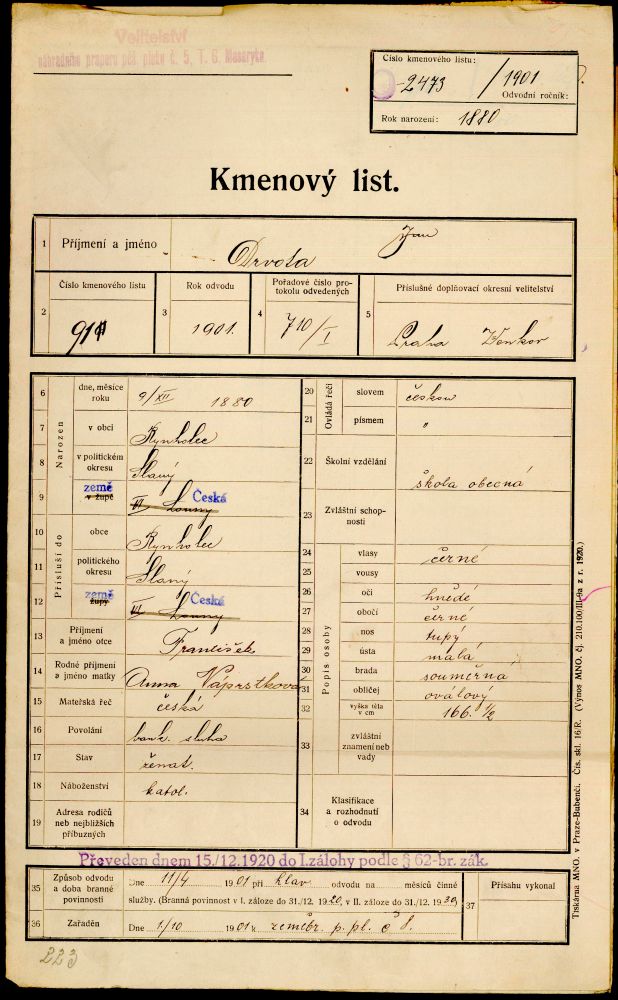 Velitelství
náhradního praporu pěš. pluku č. 5, T. G. Masaryka.
Číslo kmenového listu:
2473 / 1901
Odvodní ročník:
Rok narození: 1880
Kmenový list.
1 Příjmení a jméno Drvota Jan
Číslo kmenového listu Rok odvodu Pořadové číslo pro-
tokolu odvedených Příslušné doplňovací okresní velitelství
2 911 3 1901. 4 710/I 5 Praha Venkov
6 Narozen dne, měsíce
roku 9/XII 1880
7 v obci Rynholec
8 v politickém
okresu Slaný
9 země
v župě VI Louny Česká
10 Přísluší do obce Rynholec
11 politického
okresu Slaný
12 země
župy VI Louny Česká
13 Příjmení
a jméno otce František
14 Rodné příjmení
a jméno matky Anna Váprstková
15 Mateřská řeč česká
16 Povolání bank. sluha
17 Stav ženat.
18 Náboženství katol.
19 Adresa rodičů
neb nejbližších
příbuzných
20 Ovládá řeči slovem českou
21 písmem "
22 Školní vzdělání škola obecná
23 Zvláštní schop-
nosti
24 Popis osoby vlasy černé
25 vousy
26 oči hnědé
27 obočí černé
28 nos tupý
29 ústa malá
30 brada souměrná
31 obličej oválový
32 výška těla
v cm 166.1/2
33 zvláštní
znamení neb
vady
34 Klasifikace
a rozhodnutí
o odvodu
Převeden dnem 15./12.1920 do I.zálohy podle § 62-br. zák.
35 Způsob odvodu
a doba branné
povinnosti Dne 11/4 1901 při hlav. odvodu na měsíců činné
služby. (Branná povinnost v I. záloze do 31./12. 1920, v II. záloze do 31./12. 1930)
36 Zařaděn Dne 1/10 1901 k zeměbr. p. pl. č 8.
37 Přísahu vykonal
Tiskárna MNO. v Praze-Bubenči. Čís. skl. 16/R. (Výnos MNO. čj. 210.100/III-9a z r. 1920.)
223